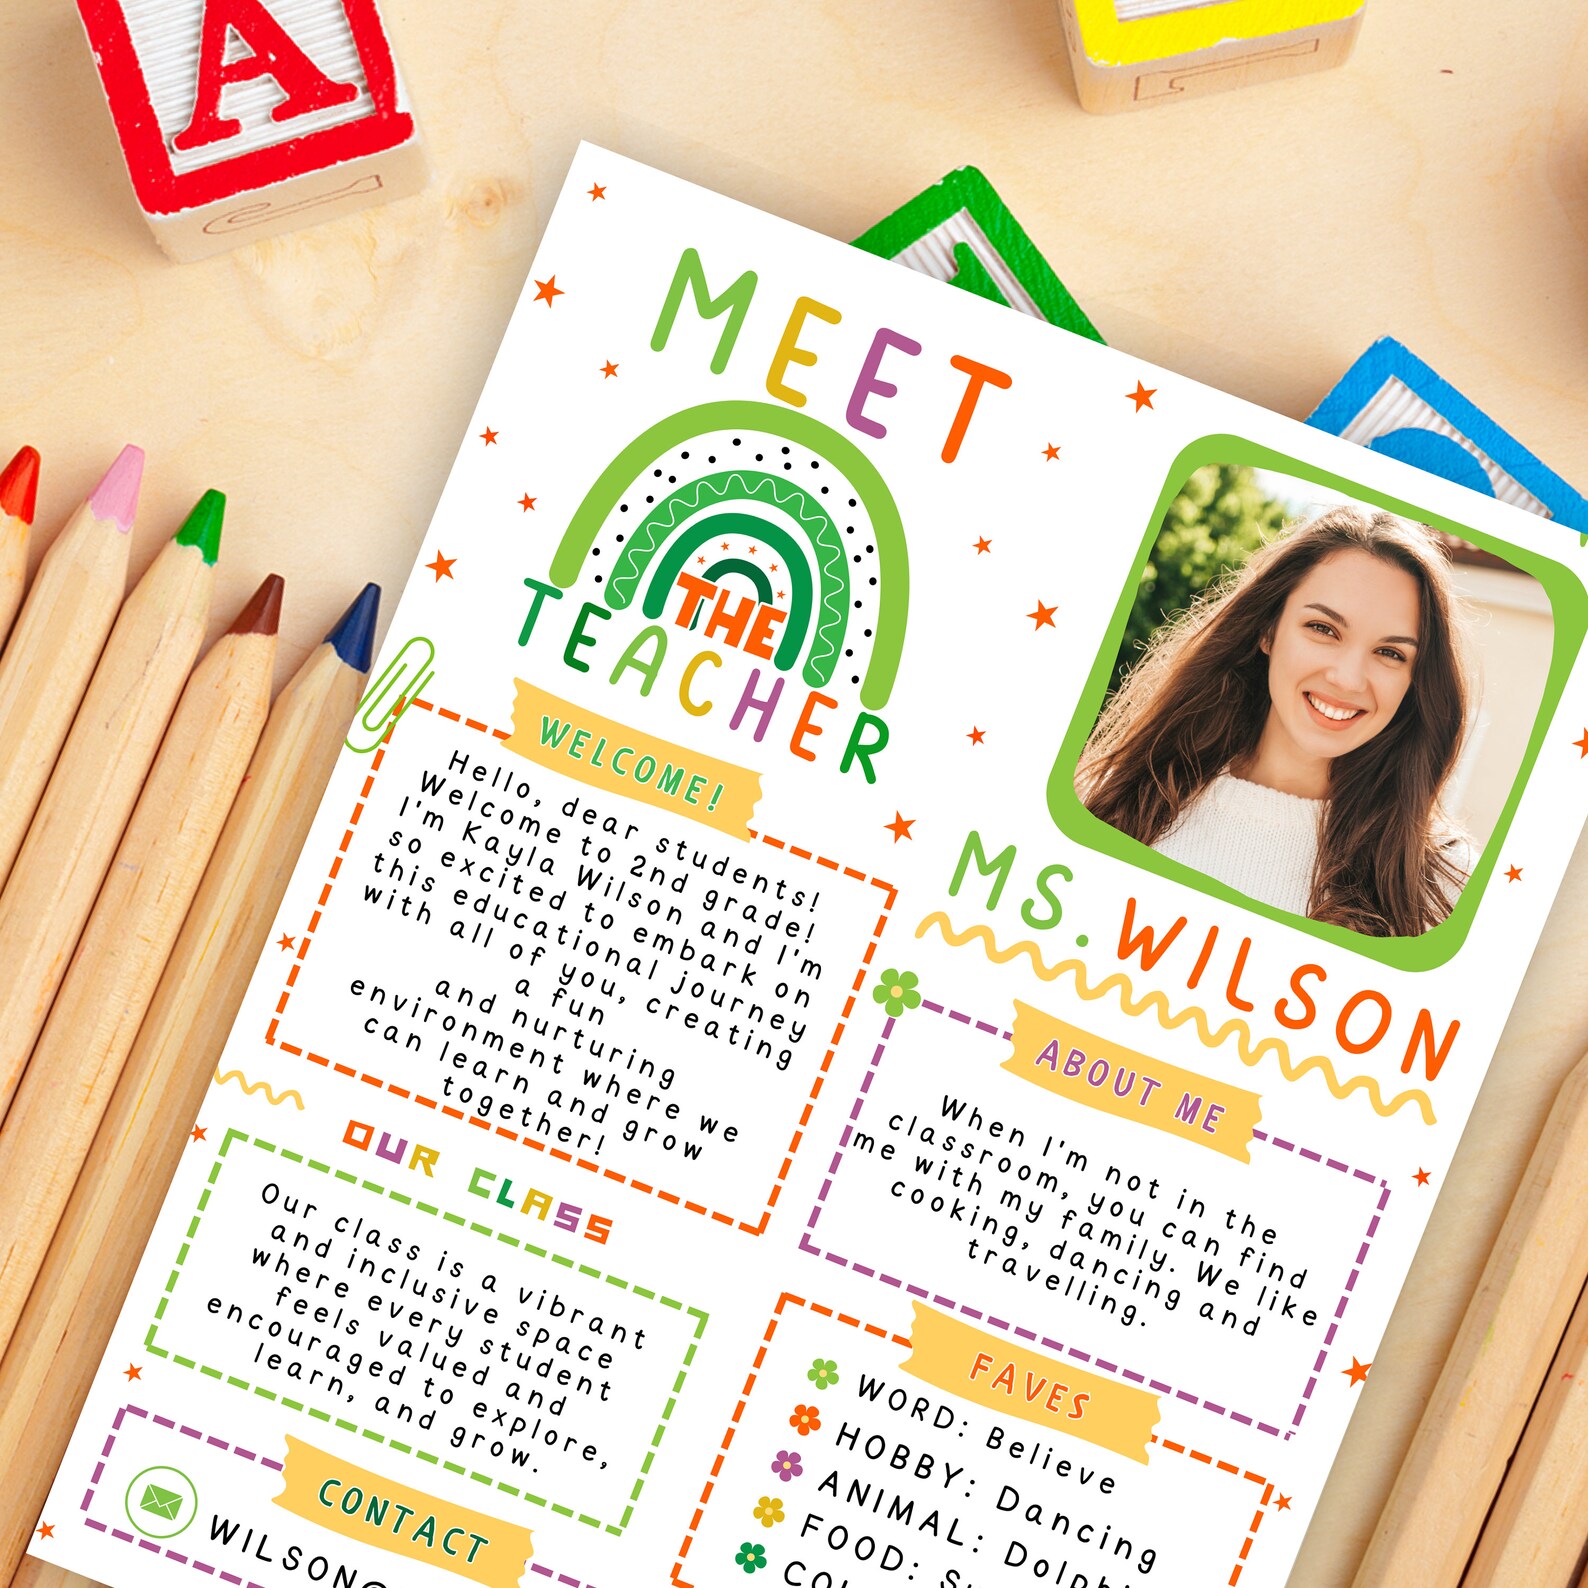 A
MEET
THE
TEACHER
WELCOME!
Hello, dear students!
Welcome to 2nd grade!
I'm Kayla Wilson and I'm
so excited to embark on
this educational journey
with all of you, creating
a fun
and nurturing
environment where we
can learn and grow
together!
OUR CLASS
Our class is a vibrant
and inclusive space
where every student
feels valued and
encouraged to explore,
learn, and grow.
CONTACT
WILSON@
MS. WILSON
ABOUT ME
When I'm not in the
classroom, you can find
me with my family. We like
cooking, dancing and
travelling.
FAVES
WORD: Believe
HOBBY: Dancing
ANIMAL:
FOOD: